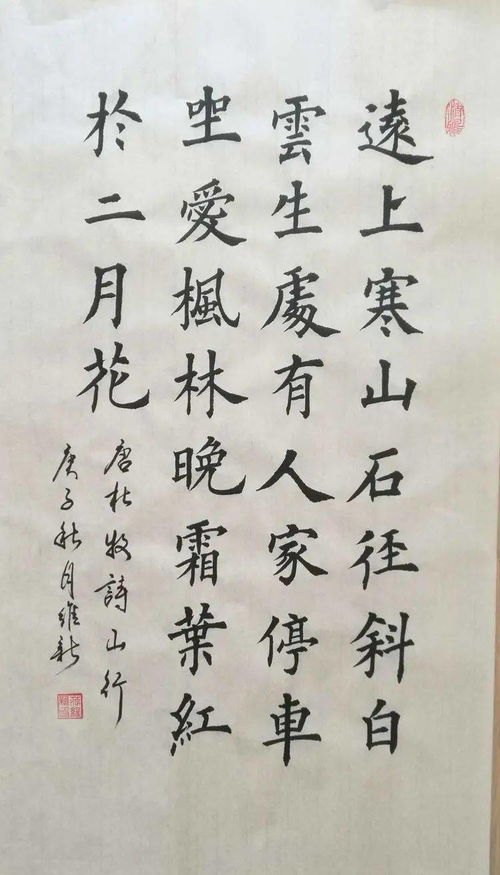 遠上寒山石径斜白
雲生處有人家停車
坐愛楓林晚霜葉紅
於二月花
唐杜牧詩山行
庚子秋月維新